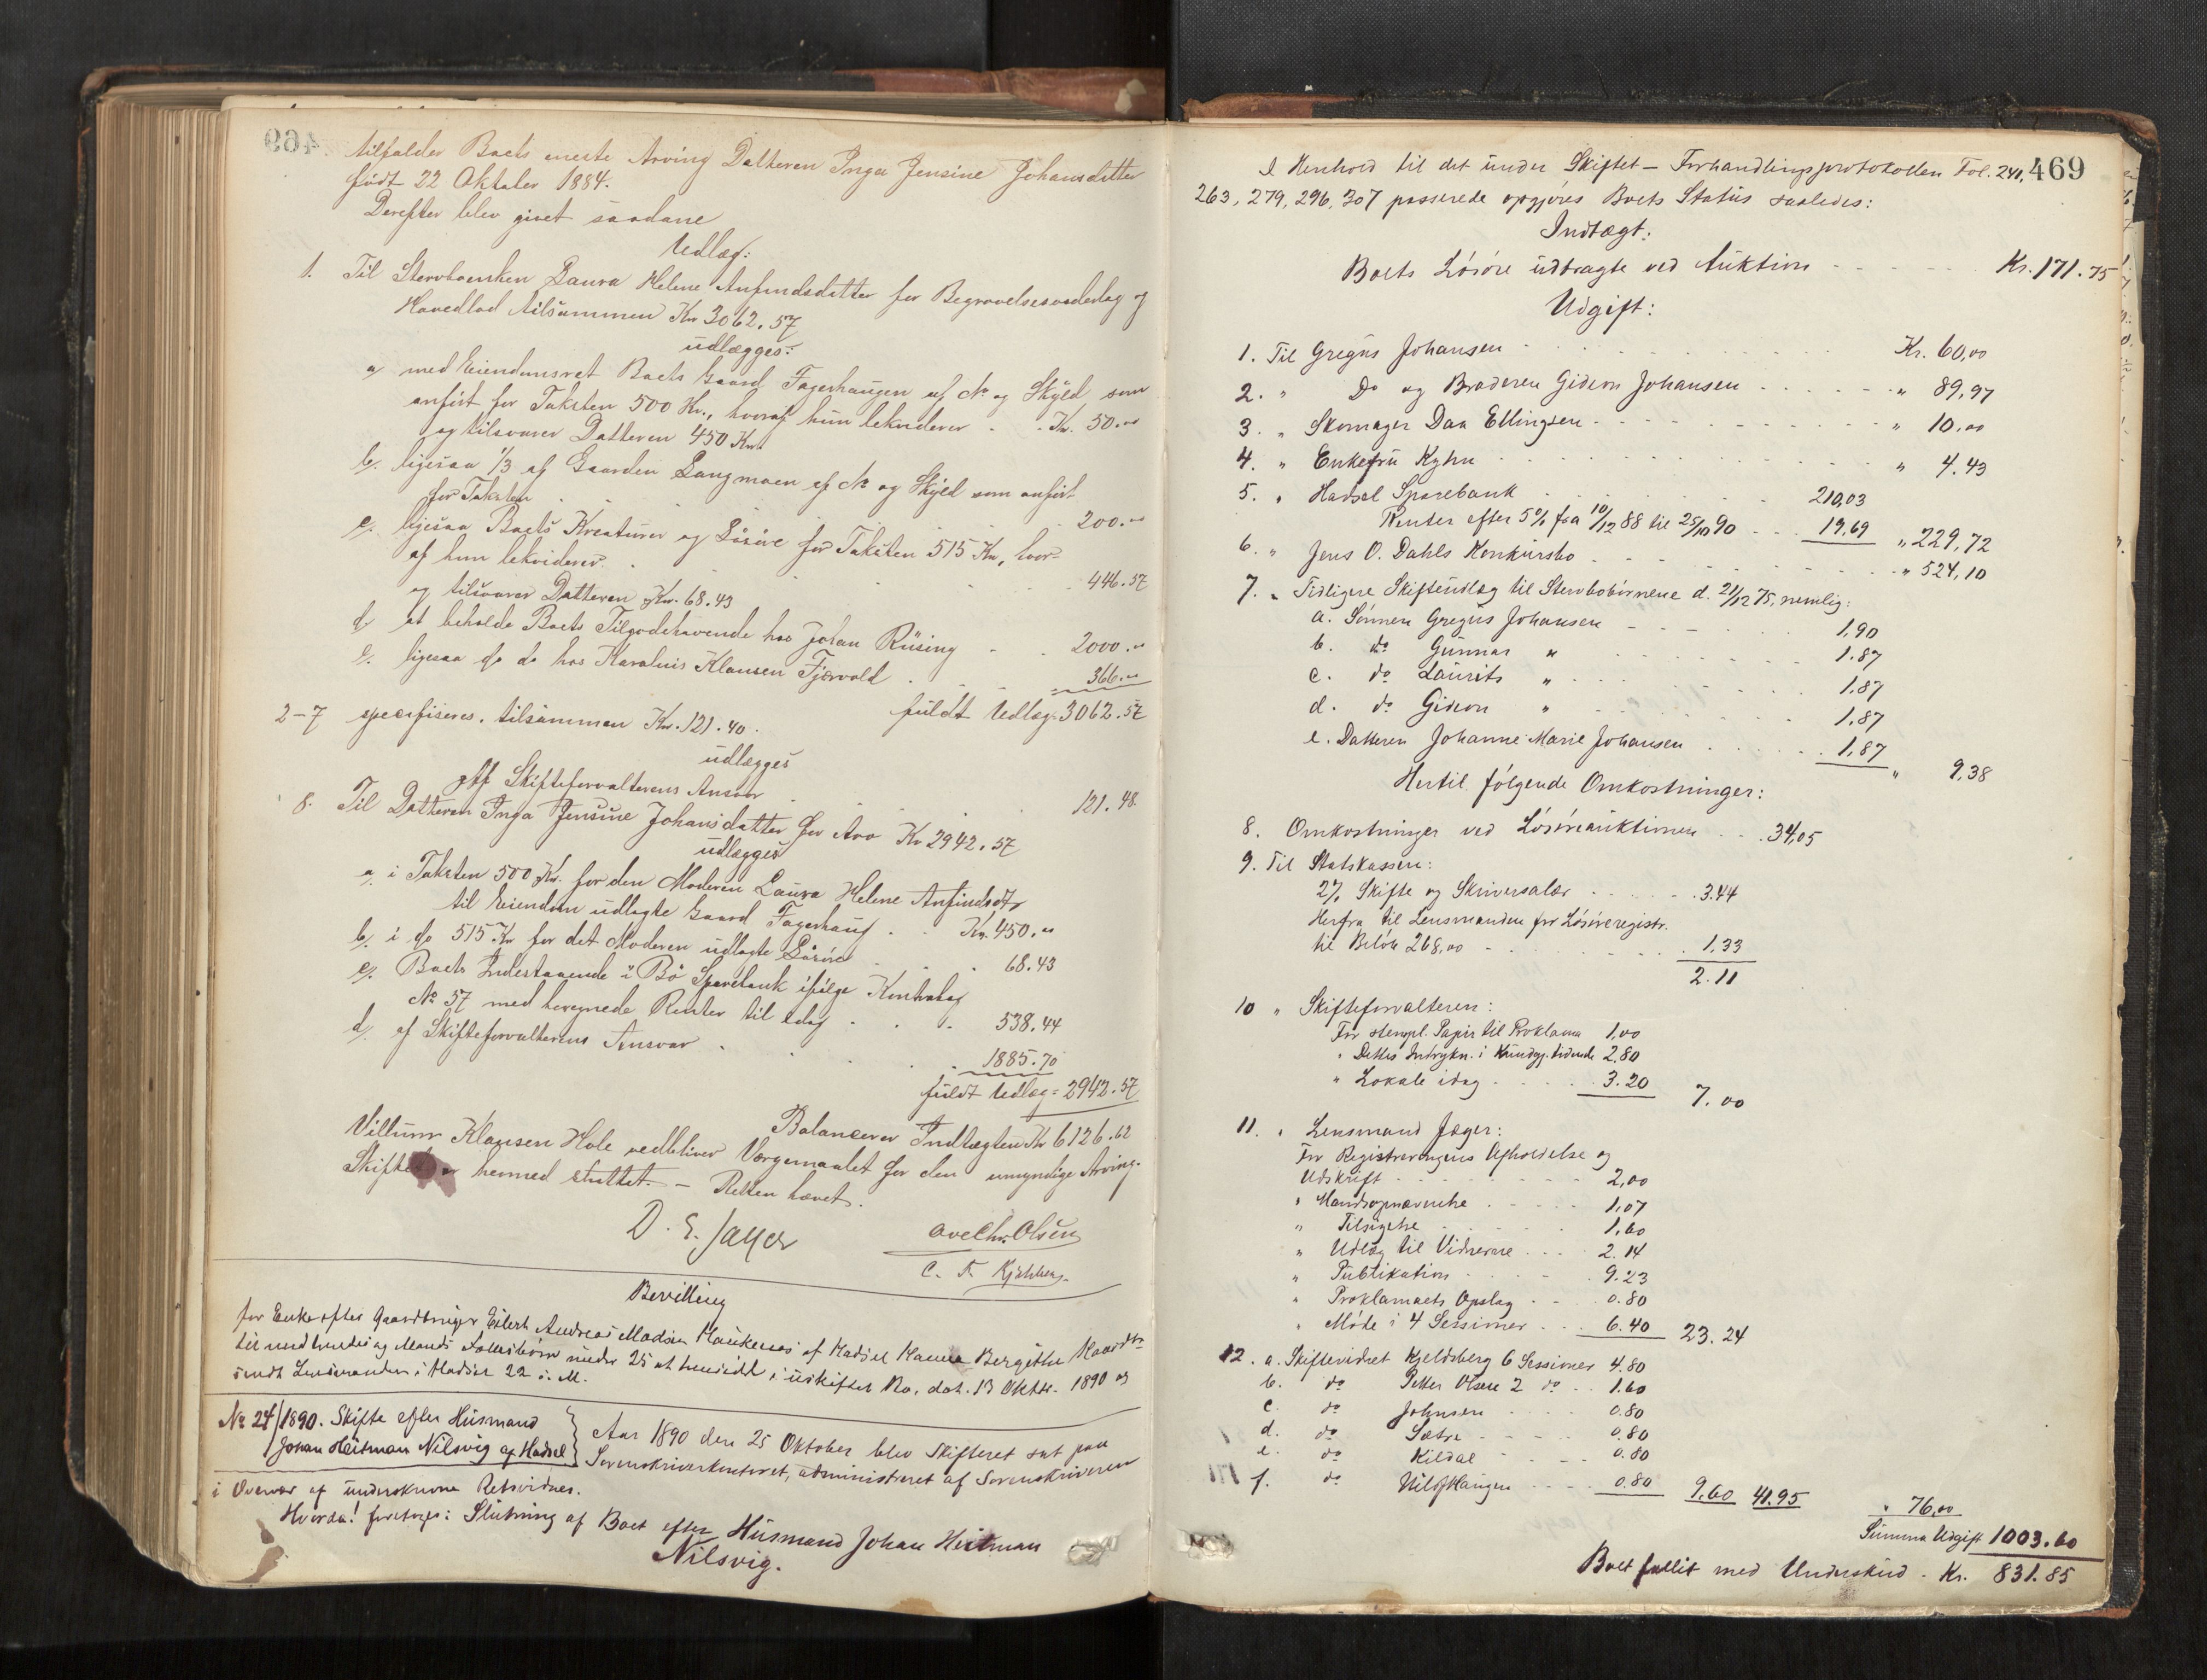 469
tilfalder Boets eneste Arving Datteren Inga Jensine Johansdatter
født 22 Oktober 1884.
Derefter blev givet saadane
Udlæg:
1. Til Stervboenken Laura Helene Anfindsdatter for Begravelsesvederlag og
Hovedlod tilsammen Kr 3062.57
udlægges:
a, med Eiendomsret Boets Gaard Fagerhaugen af No og Skyld som
anført for Taksten 500 Kr., hvoraf hun lekviderer . . Kr. 50.00
og tilsvarer Datteren 450 Kr.
b, ligesaa 1/3 af Gaarden Langmoen af No og Skyld som anført
for Taksten . . . 200.00
c, ligesaa Boets Kreaturer og Løsøre for Taksten 515 Kr, hvor-
af hun lekviderer . . . 446.57
og tilsvarer Datteren Kr. 68.43
d, at beholde Boets Tilgodehavende hos Johan Rüsing . . 2000.00
e, ligesaa do do hos Karolius Klausen Fjærvold . . 366.00
fuldt Udlæg = 3062.57
2-7 specifiseres. tilsammen Kr. 121.40.
udlægges
Af Skifteforvalterens Ansvar . . . 121.48
8. Til Datteren Inga Jensine Johansdatter for Arv Kr 2942.57
udlægges
a, i Taksten 500 Kr. for den Moderen Laura Helene Anfindsdtr
til Eiendom udlagte Gaard Fagerhaug . . Kr. 450.00
b, i do 515 Kr for det Moderen udlagte Løsøre . . 68.43
c, Boets Indestaaende i Bø Sparebank ifølge Kontrabog
No 57 med beregnede Renter til idag . . . 538.44
d, af Skifteforvalterens Ansvar . . . 1885.70
fuldt Udlæg = 2942.57
Balancerer Indtægten Kr 6126.62
Villum Klausen Hole vedbliver Værgemaalet for den umyndige Arving.
Skiftet er hermed sluttet. — Retten hævet.
D. E. Jager Ove Chr. Olsen
C. A. Kjeldsberg.
Bevilling
for Enke efter Gaardbruger Eilert Andreas Madsen Haukenes af Hadsel Hanna Bergitte
til med hendes og Mands Fællesbørn under 25 at hensidde i uskiftet Bo, dat. 13 Oktbr. 1890 og
sendt Lensmanden i Hadsel 22 s. M.
No 24/1890. Skifte efter Husmand
Johan Heitman Nilsvig af Hadsel
Aar 1890 den 25 Oktober blev Skifteret sat paa
Sorenskriverkontoret, administreret af Sorenskriveren
i Overvær af underskrevne Retsvidner.
Hvorda! foretoges: Slutning af Boet efter Husmand Johan Heitman
Nilsvig.
469
I Henhold til det under Skiftet — Forhandlingsprotokollen Fol. 240,
263, 279, 296, 307 passerede opgjøres Boets Status saaledes:
Indtægt:
Boets Løsøre udbragte ved Auktion - - - Kr. 171.75
Udgift:
1. Til Gregus Johansen . . . Kr. 60,00
2. " Do og Broderen Gideon Johansen . . . " 89,97
3. " Skomager Daa Ellingsen . . . " 10,00
4. " Enkefru Kyhn . . . " 4.43
5. " Hadsel Sparebank . . . 210,03
Renter efter 5% fra 10/12 88 til 25/10 90 . . . 19,69 " 229,72
6. " Jens O. Dahls Konkursbo . . . " 524,10
7. " Tidligere Skifteudlæg til Stervbobørnene d. 21/12 75, nemlig:
a. Sønnen Gregus Johansen . . . 1,90
b. do Gunnar " . . . 1.87
c. do Laurits " . . . 1,87
d. do Gideon " . . . 1,87
e. Datteren Johanne Marie Johansen . . . 1,87 " 9,38
Hertil følgende Omkostninger:
8. Omkostninger ved Løsøreauktionen . . . 34,05
9. Til Statskassen:
2% Skifte og Skriversalær . . . 3.44
Herfra til Lensmanden for Løsøreregistr.
til Beløb 268,00 . . . 1,33
2.11
10 " Skifteforvalteren:
For stempl. Papir til Proklama 1,00
" Dettes Indrykn. i Kundgj. tidende 2,80
" Lokale idag . . . 3.20 7.00
11. " Lensmand Jæger:
For Registreringens Afholdelse og
Udskrift . . . 2,00
" Mandsopnævnelse . . . 1,07
" Tilsigelse . . . 1,60
" Udlæg til Vidnerne . . . 2.14
" Publikation . . . 9.23
" Proklamaets Opslag . . . 0.80
" Møde i 4 Sessioner . . . 6.40 23.24
12. a. Skiftevidnet Kjeldsberg 6 Sessioner 4.80
b. do Petter Olsen 2 do . . 1.60
c. do Johnsen . . . 0.80
d. do Sætre . . . 0.80
e. do Kildal . . . 0.80
f. do Haugen . . . 0.80 9,60 41.95 " 76,00
Summa Udgift 1003.60
Boet fallit med Underskud . Kr. 831.85